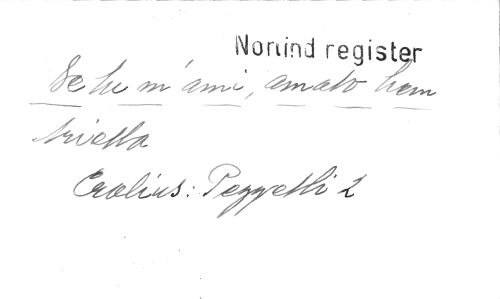 Nonind register
Se tu m'ami, amato bem
Arietta
Erolius: Pezzetti 2